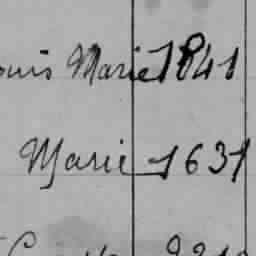 ouis Marie 1841
Marie 1631